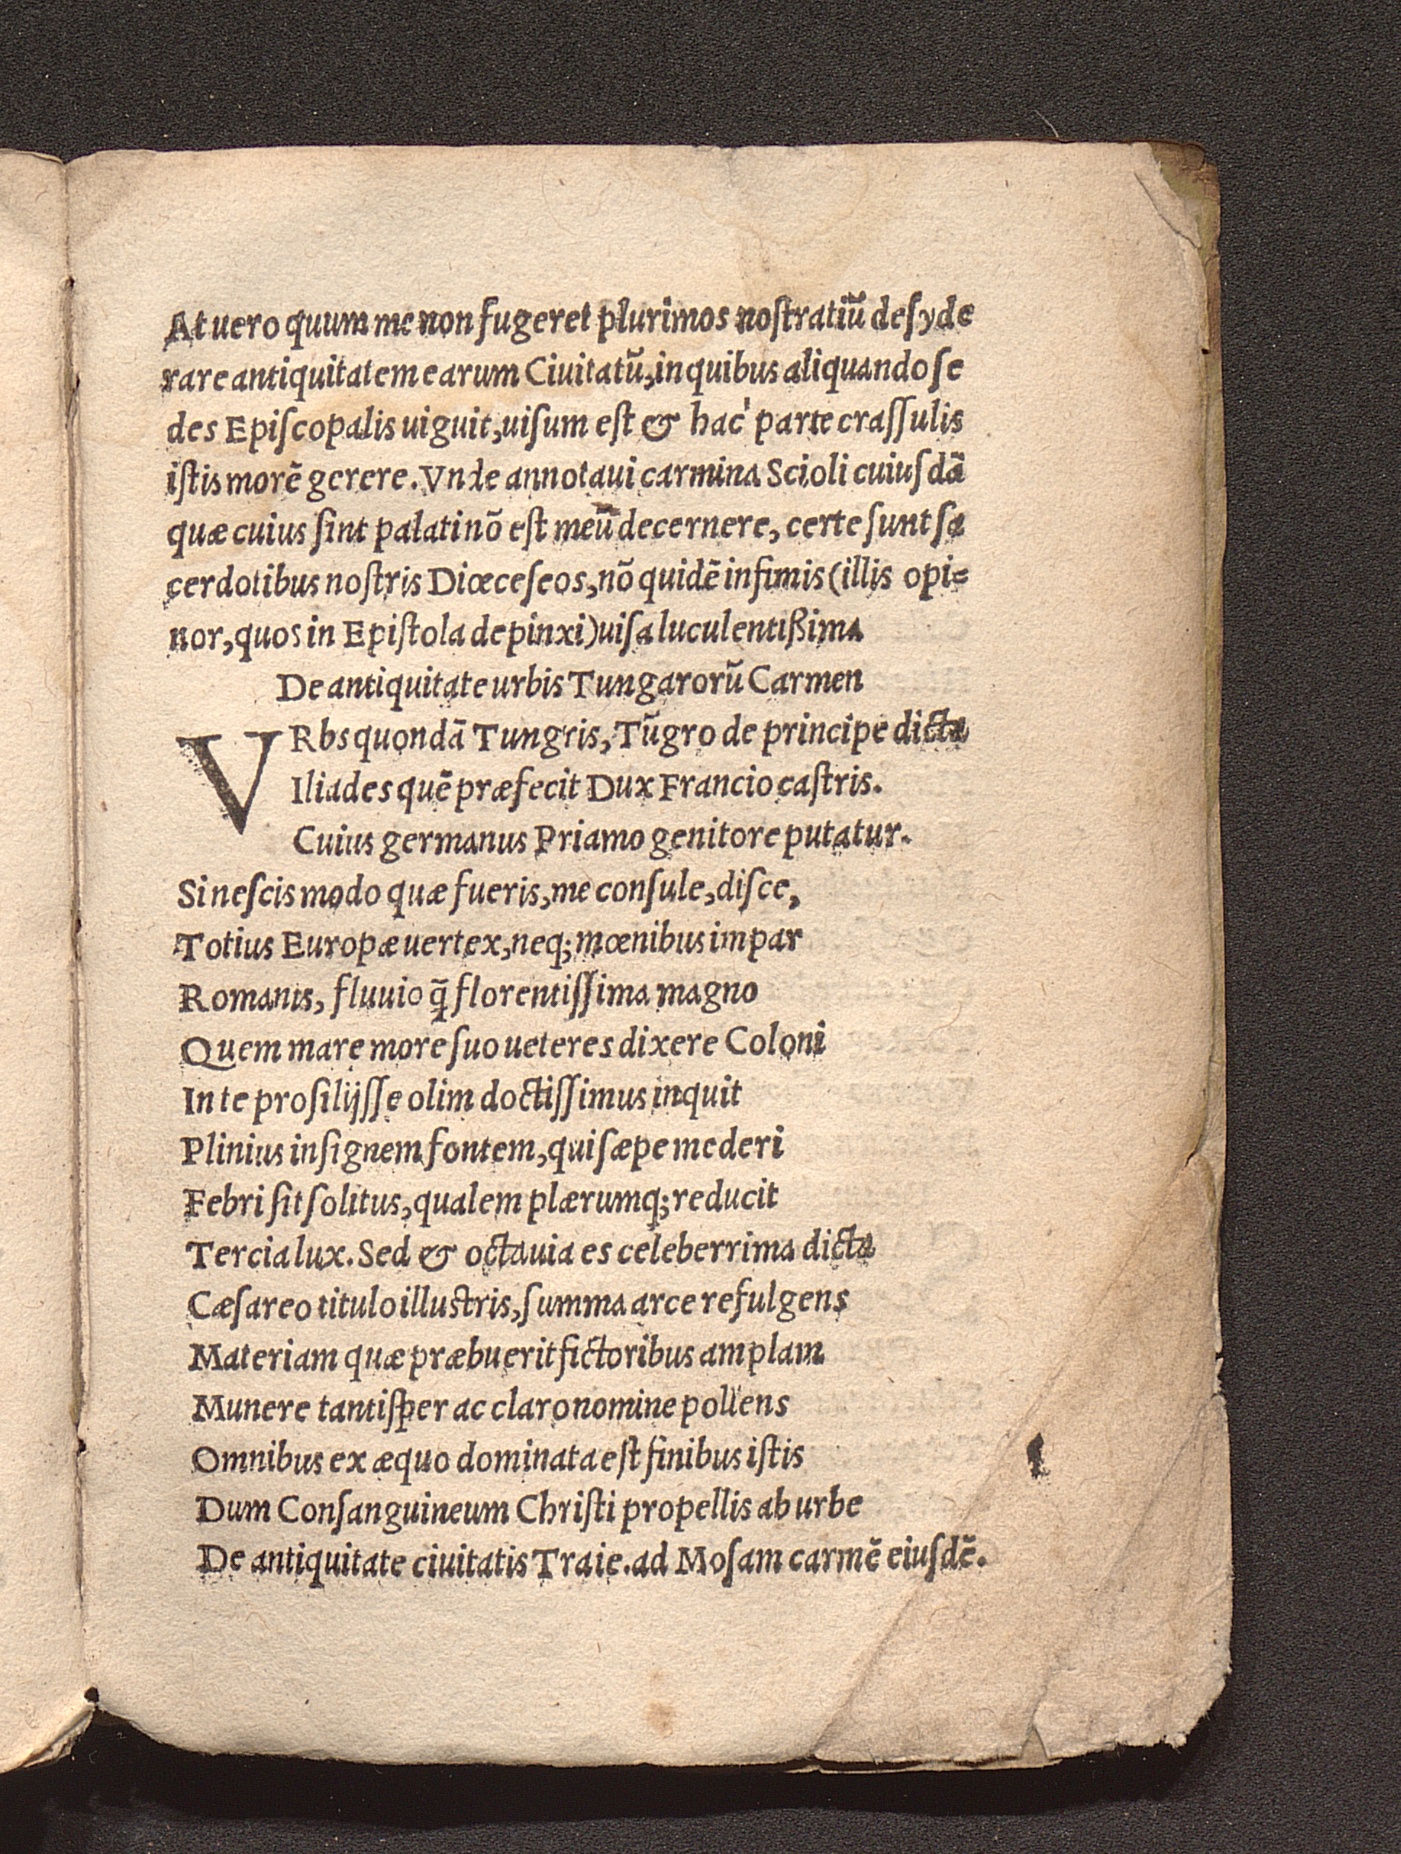 At uero quum me non fugeret plurimos noſtratiū deſyde
rare antiquitatem earum Ciuitatū, in quibus aliquando ſe
des Epiſcopalis uiguit, uiſum eſt & hac' parte craſſulis
iſtis morē gerere. Vnde annotaui carmina Scioli cuiuſdā
quæ cuius ſint palati nō eſt meū decernere, certe ſunt ſa
cerdotibus noſtris Diœceſeos, nō quidē infimis (illis opi=
nor, quos in Epiſtola depinxi) uiſa luculentißima
De antiquitate urbis Tungarorū Carmen
VRbs quondā Tungris, Tūgro de principe dicta
Iliades quē præfecit Dux Francio caſtris.
Cuius germanus Priamo genitore putatur.
Si neſcis modo quæ fueris, me conſule, diſce,
Totius Europæ uertex, neq; mœnibus impar
Romanis, fluuio q̄ florentiſſima magno
Quem mare more ſuo ueteres dixere Coloni
In te proſilijſſe olim doctiſſimus inquit
Plinius inſignem fontem, qui ſæpe mederi
Febri ſit ſolitus, qualem plærumq; reducit
Tercia lux. Sed & octauia es celeberrima dicta
Cæſareo titulo illuſtris, ſumma arce refulgens
Materiam quæ præbuerit fictoribus amplam
Munere tantiſper ac claro nomine pollens
Omnibus ex æquo dominata eſt finibus iſtis
Dum Conſanguineum Chriſti propellis ab urbe
De antiquitate ciuitatis Traie. ad Moſam carmē eiuſdē.